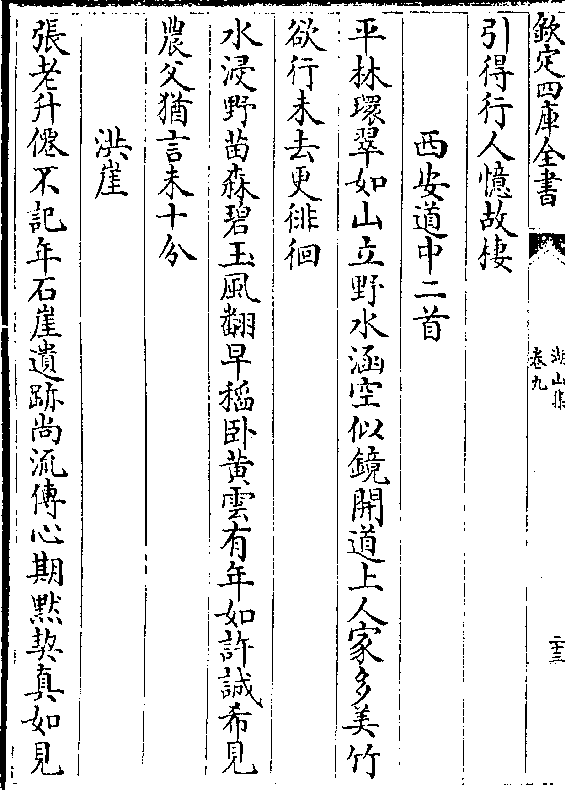 欽定四庫全書
湖山集
卷九
二十三
引得行人憶故棲
西安道中二首
平林環翠如山立野水涵空似鏡開道上人家多美竹
欲行未去更徘徊
水浸野苗森碧玉風翻早稻卧黄雲有年如許誠希見
農父猶言未十分
洪崖
張老升僊不記年石崖遺跡尚流傳心期黙契真如見